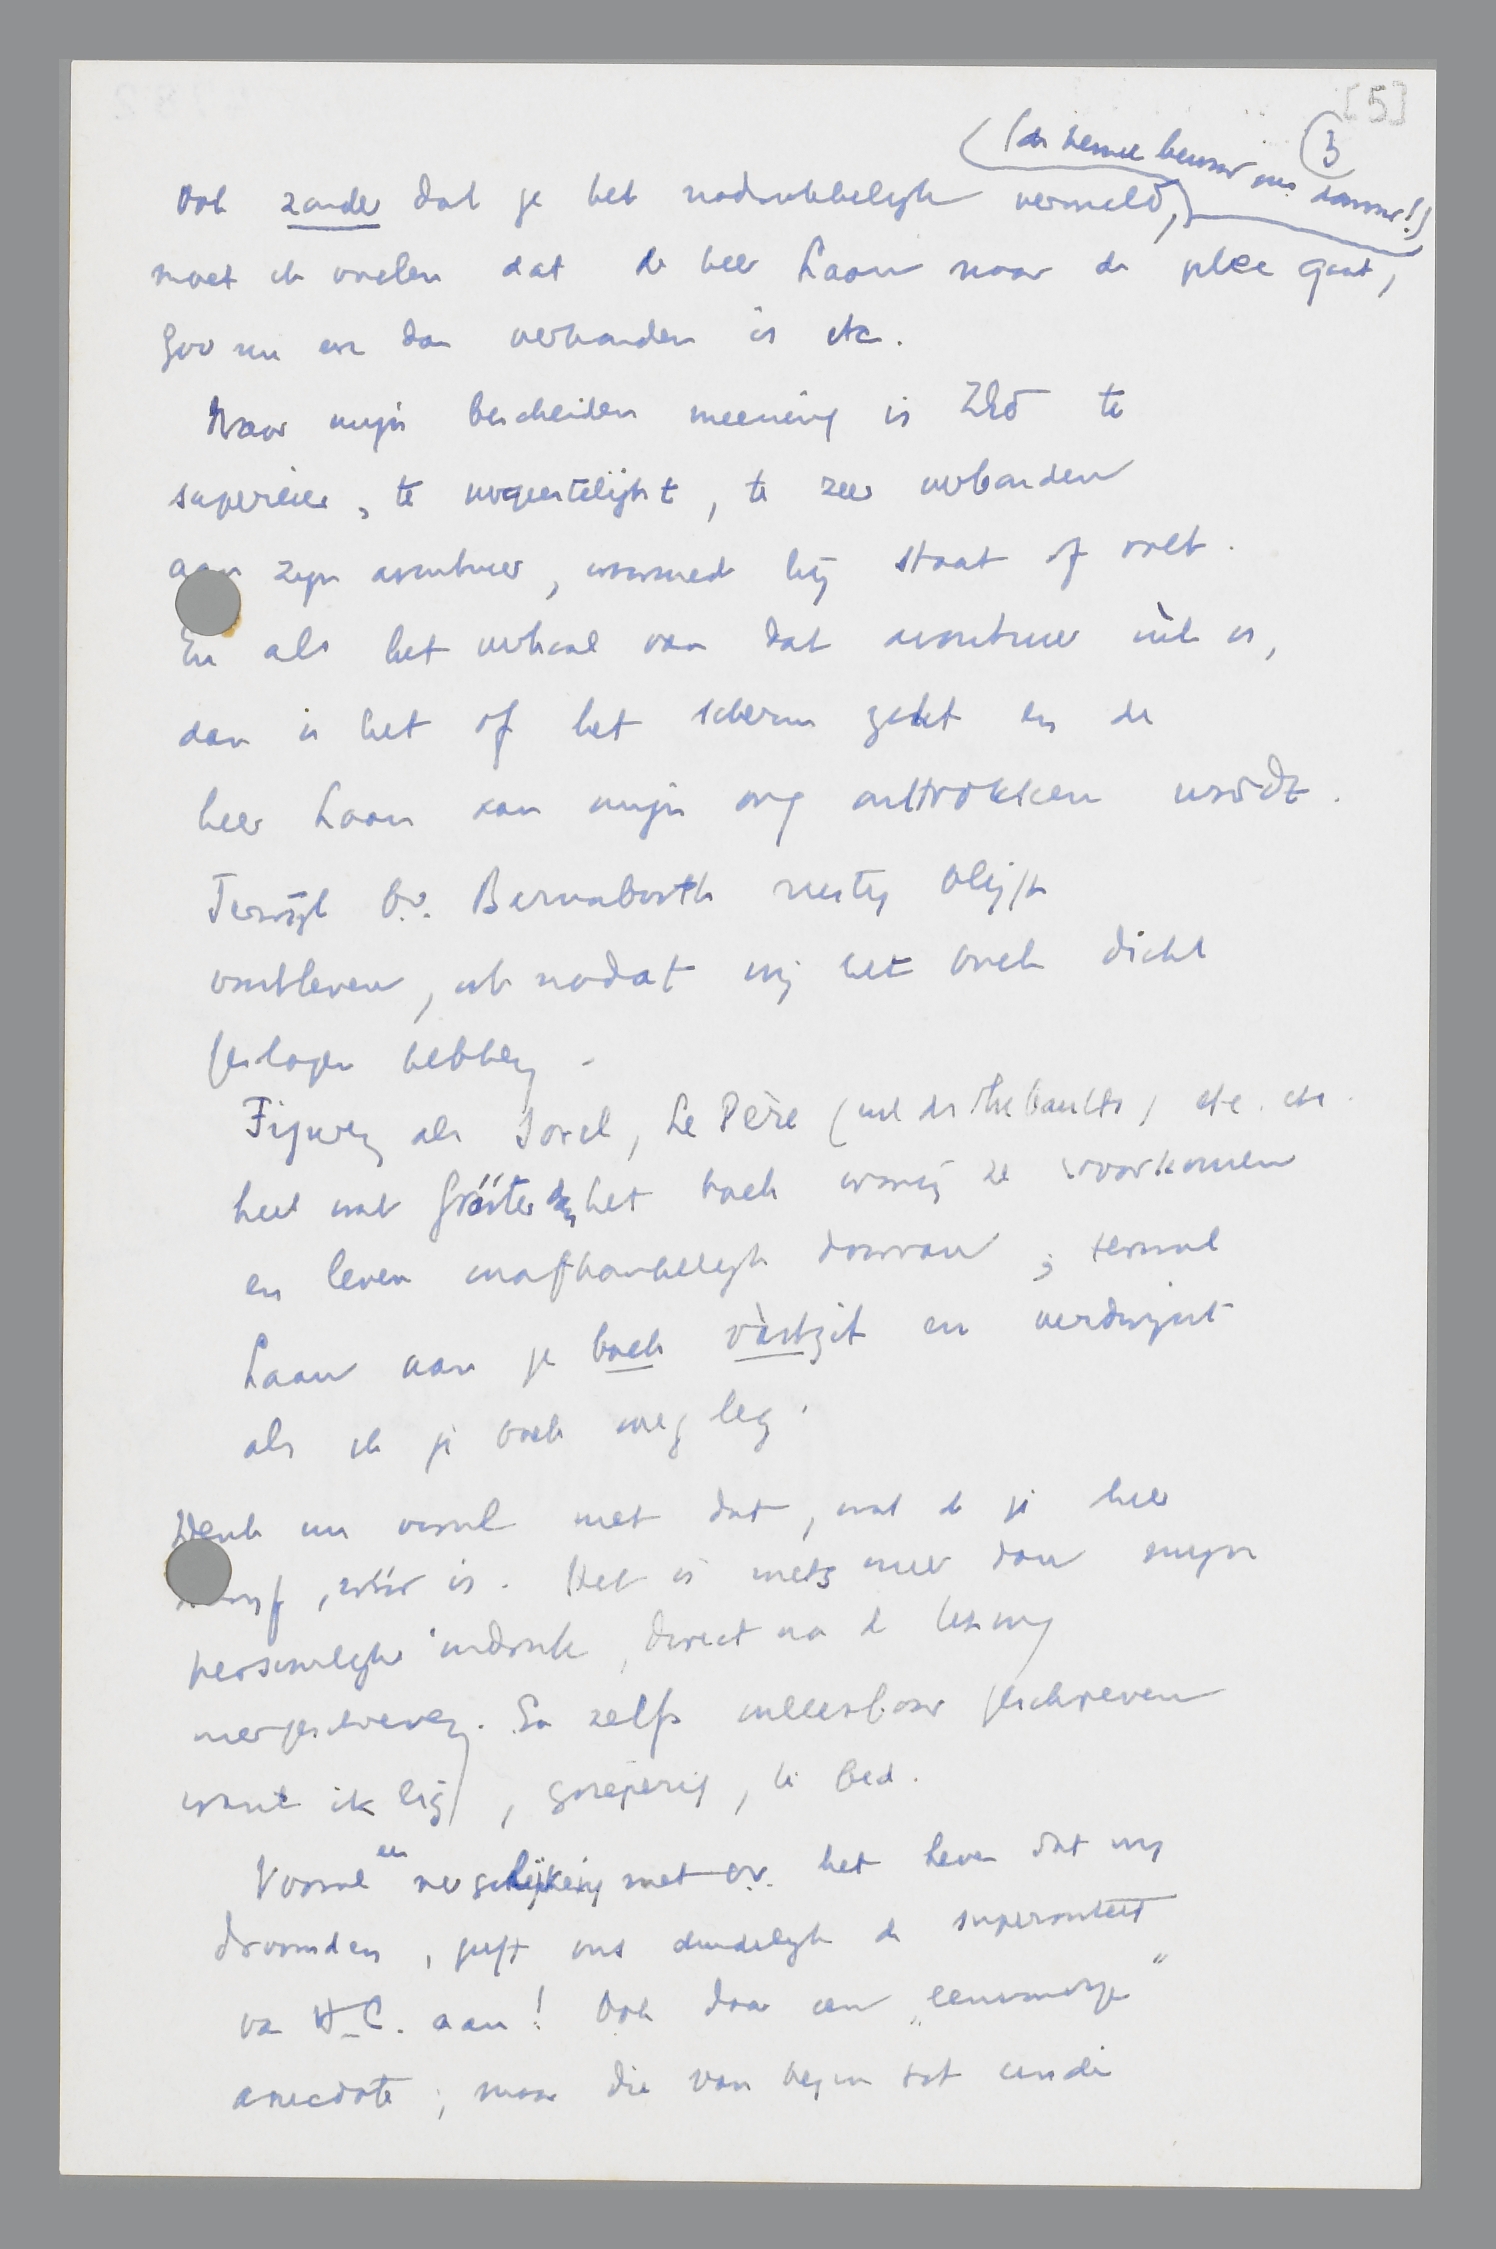 [5]
3
(de hemel bewaar ons daarvoor!)
Ook zonder dat je het nadrukkelijk vermeld,
moet ik voelen dat de heer Laan naar de plee gaat,
gov nu en dan verkouden is etc.
Naar mijn bescheiden meening is Zkō te
superieur, te vergeestelijkt, te zeer verbonden
aan zijn avontuur, waarmed hij staat of valt.
En als het verhaal van dat avontuur uit is,
dan is het of het scherm zakt en de
heer Laan aan mijn oog onttrokken wordt.
Terwijl b.v. Barnabooth rustig blijft
voortleven, ook nadat wij het boek dicht
geslagen hebben.
Figuren als Sorel, Le Père (uit de Thibaults) etc. etc.
heel wat grooter dan het boek waarin ze voorkomen
en leven onafhankelijk daarvan; terwijl
Laan aan je boek vàstzit en verdwijnt
als ik je boek weg leg.
Denk nu vooral niet dat, wat ik je hier
schrijf, wáár is. Het is niets meer dan mijn
persoonlijke indruk, direct na de lezing
neergeschreven. En zelfs onleesbaar geschreven
want ik lig, grieperig, te bed.
Vooral een vergelijking met b.v. het leven dat wij
droomden, geeft ons duidelijk de superioriteit
van H-C. aan! Ook daar een „eenvoudige"
anecdote; maar die van begin tot einde